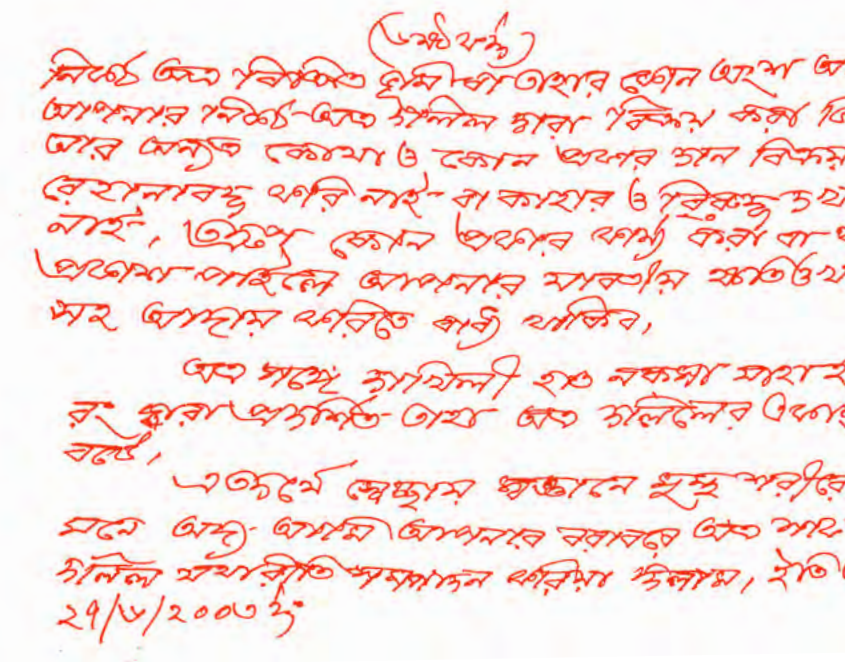 নিম্নে অত্র বিক্রিত ভূমি বা তাহার কোন অংশ
আপনার নিকট অত্র দলিল দ্বারা বিক্রয় করা
আর অন্যত্র কোথা ও কোন প্রকার দান বিক্রয়
রেহানাবদ্ধ করি নাই- বা কাহার ও
নাই, এরূপ কোন প্রকার কার্য্য করা বা
প্রকাশ পাইলে আপনার যাবতীয় ক্ষতি ও
সহ আদায় করিতে বাধ্য থাকিব,
অত্র সঙ্গে দাখিলী হাত নকসা যাহা
রং দ্বারা প্রদর্শিত তাহা অত্র দলিলের
বটে,
এতদর্থে স্বেচ্ছায় স্বজ্ঞানে সুস্থ শরীরে
মনে অদ্য আমি আপনার বরাবরে অত্র
দলিল যথারীতি সম্পাদন করিয়া দিলাম, ইতি
২৭/৬/২০০৩ ইং